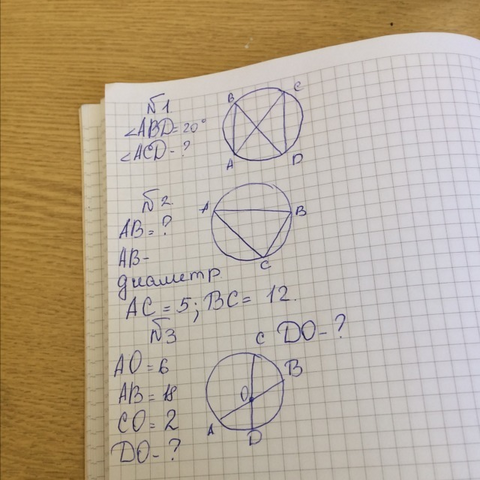 №1
∠ABD=20°
∠ACD-?
B
C
A
D
№2
AB=?
AB-
диаметр
AC=5; BC=12.
A
B
C
№3
AO=6
AB=18
CO=2
DO-?
C
DO-?
B
O
A
D